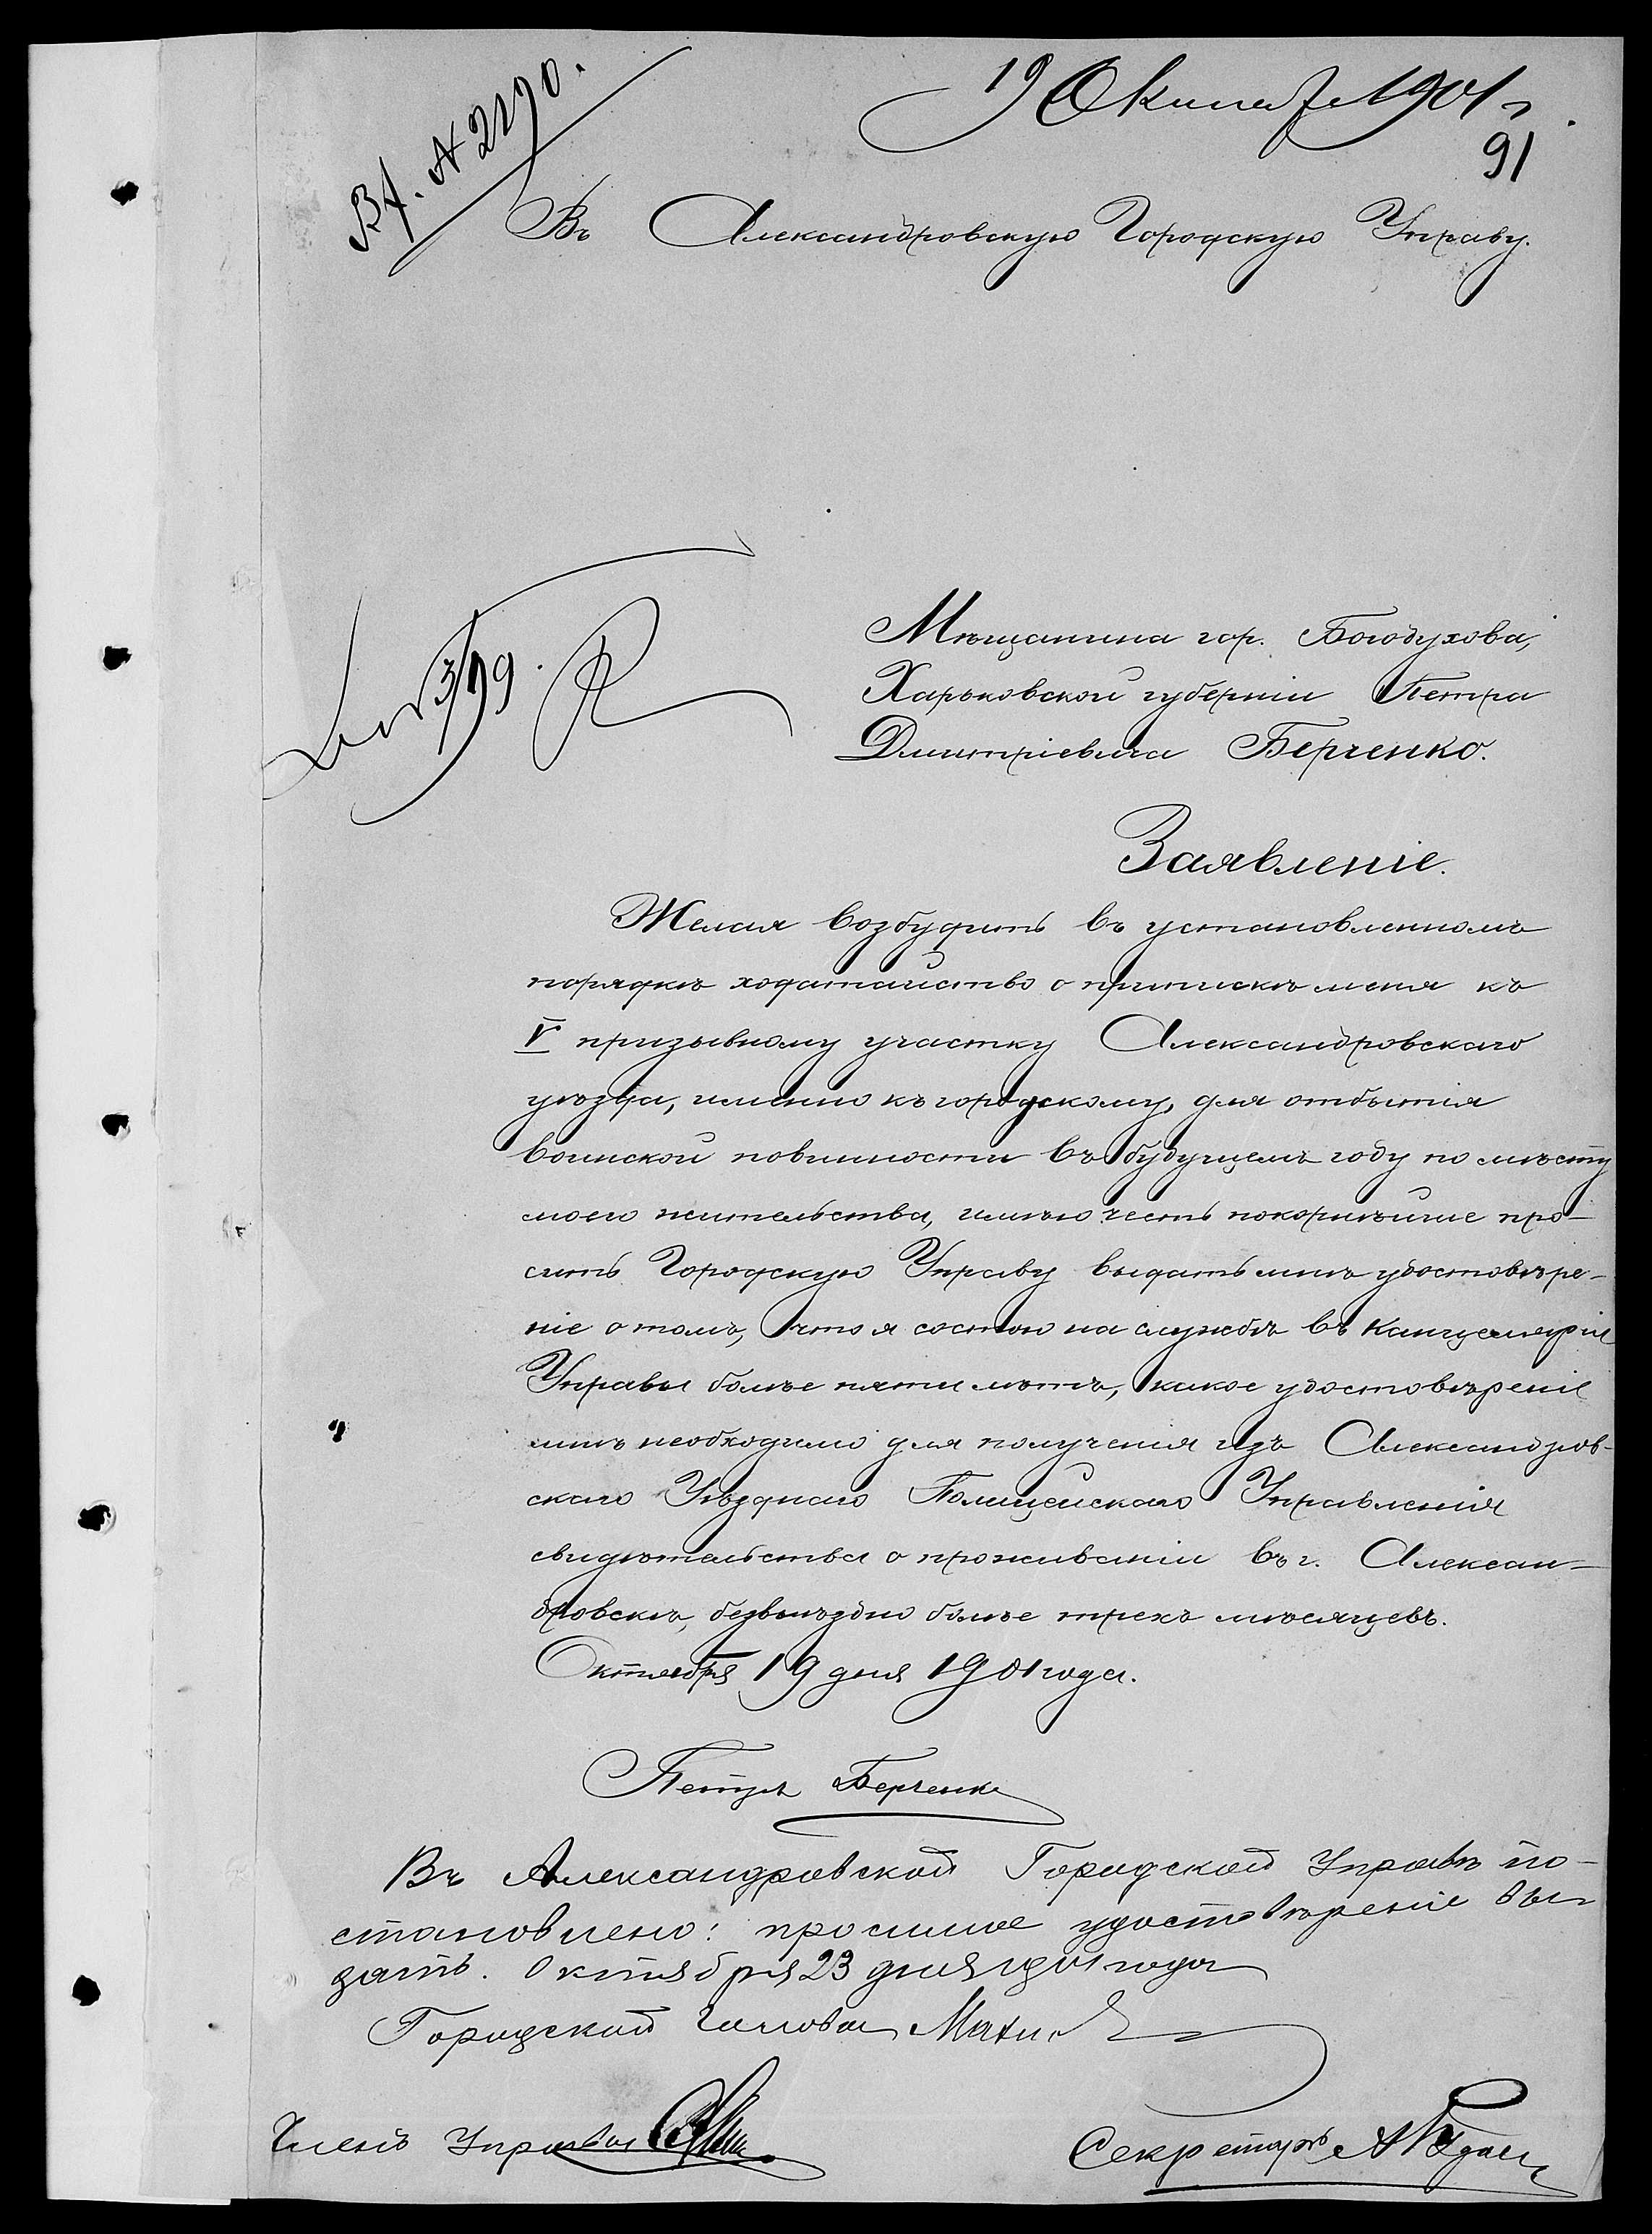 Вх. N 2190.
19 Октября 1901 г.
91
Въ Александровскую Городскую Управу.
Мѣщанина гор. Богодухова,
Харьковской губерніи Петра
Дмитріевича Берченко.
Заявленіе.
Желая возбудить въ установленномъ
порядкѣ ходатайство о припискѣ меня къ
V призывному участку Александровскаго
уѣзда, именно къ городскому, для отбытія
воинской повинности въ будущемъ году по мѣсту
моего жительства, имѣю честь покорнѣйше про-
сить Городскую Управу выдать мнѣ удостовѣре-
ніе о томъ, что я состою на службѣ въ Канцеляріи
Управы болѣе пяти лѣтъ, какое удостовѣреніе
мнѣ необходимо для получения изъ Александров-
скаго Уѣзднаго Полицейскаго Управленія
свидѣтельства о проживаніи въ г. Алексан-
дровскѣ, безвыѣздно болѣе трехъ мѣсяцевъ.
Октября 19 дня 1901 года.
Петръ Берченко
Въ Александровской Городской Управѣ по-
становлено: просимое удостовѣреніе вы-
дать. Октября 23 дня 1901 года
Городской Голова
Членъ Управы
Секретарь